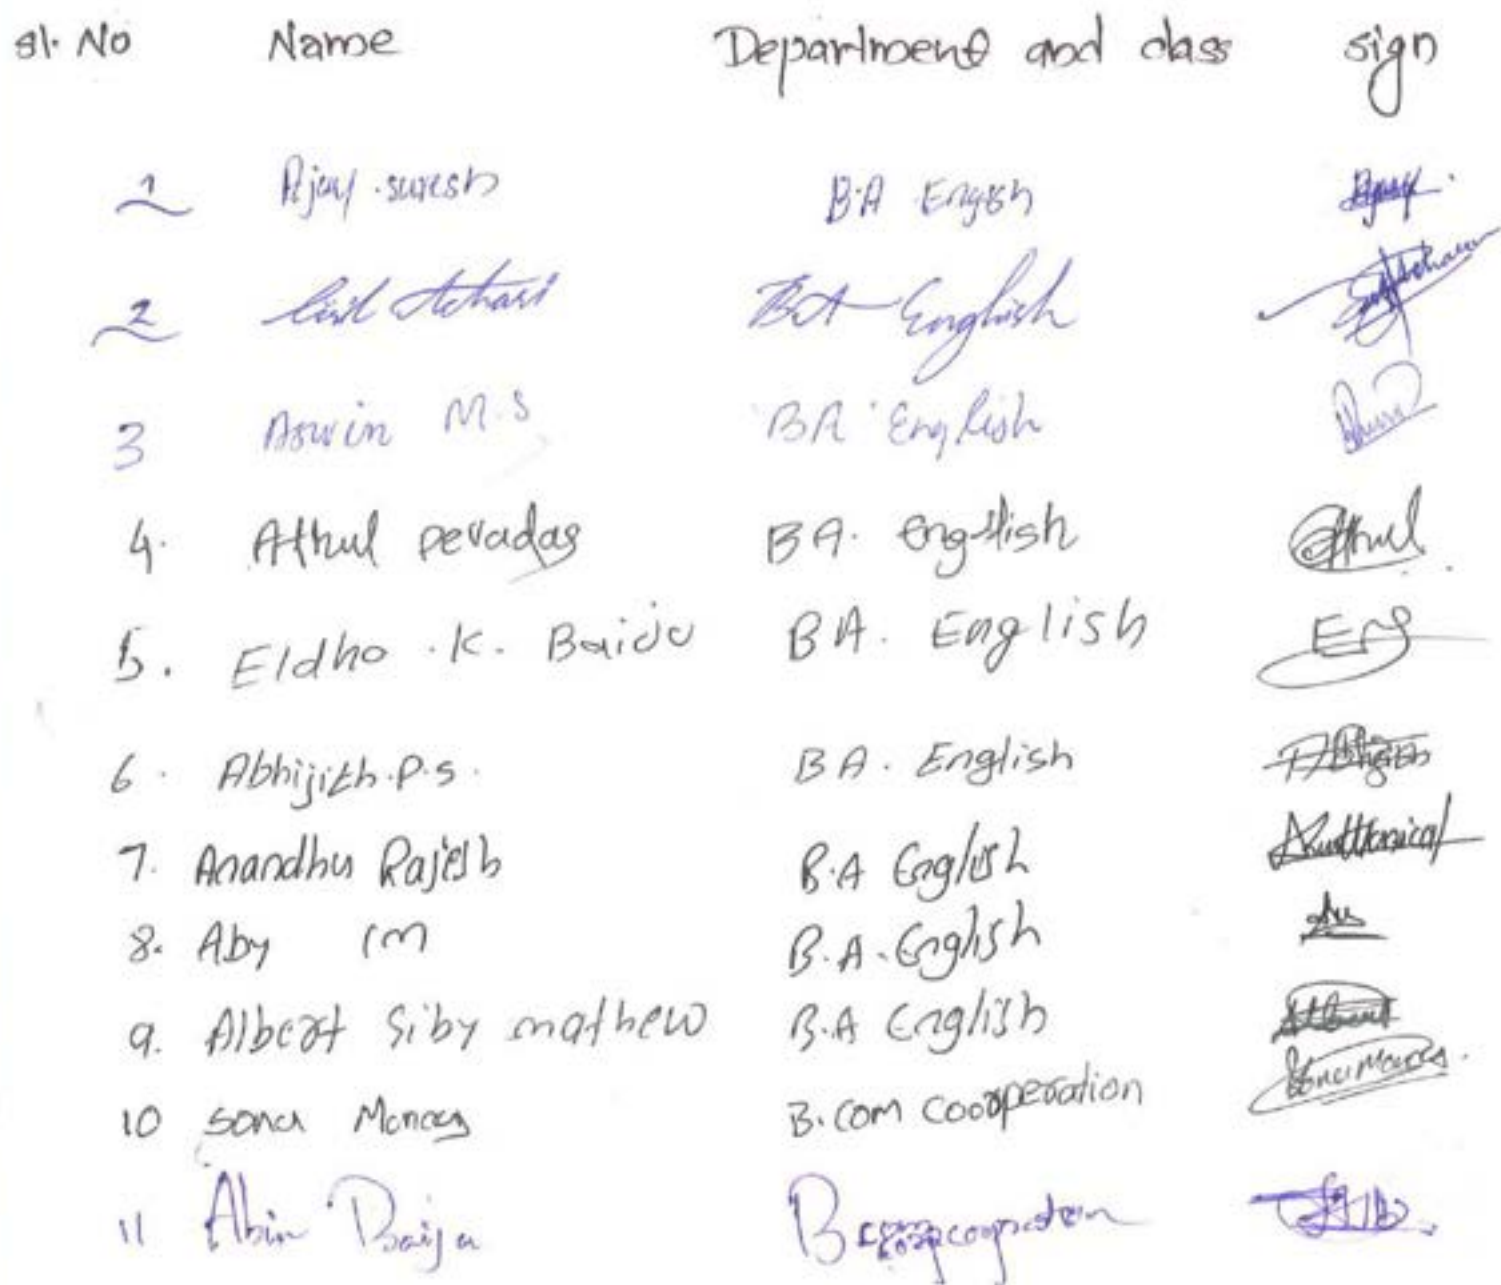 sl. No Name Department and class sign
1 Ajay .suresh B.A Engish Ajay.
2 Achari BA English
3 Aswin M.S BA English
4. Athul Devadas BA. english Athul
5. Eldho .K. Baiju BA. English
6. Abhijith.P.S. BA. English Abhijith
7. Anandhu Rajesh B.A English
8. Aby B.A. English
9. Albert Siby mathew B.A English Albert
10 Sonu B.com Cooperation
11 Abin Baiju